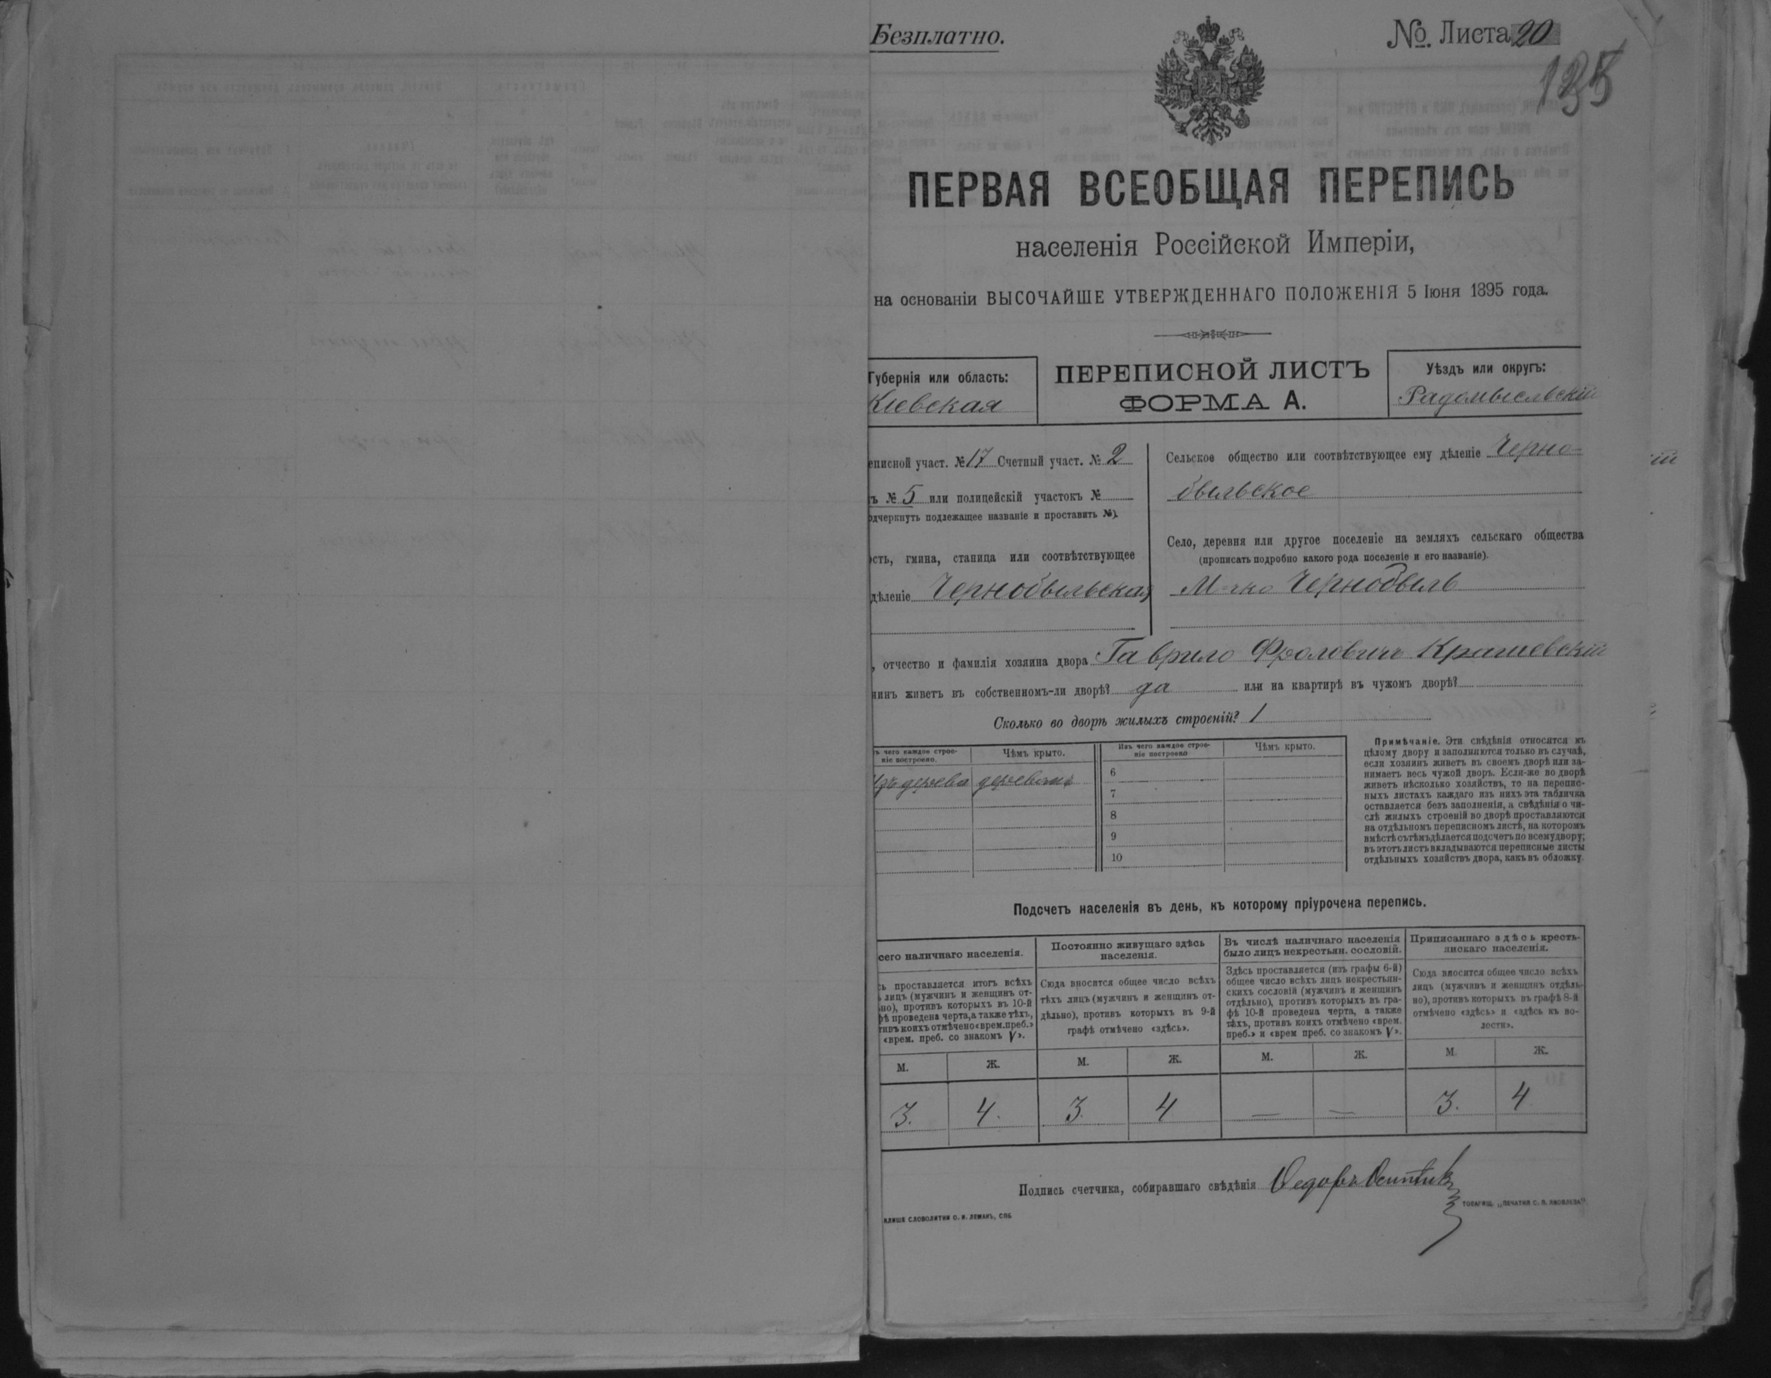 Безплатно.
№. Листа 20
195
ПЕРВАЯ ВСЕОБЩАЯ ПЕРЕПИСЬ
населенія Россійской Имперіи,
на основаніи ВЫСОЧАЙШЕ УТВЕРЖДЕННАГО ПОЛОЖЕНІЯ 5 Іюня 1895 года.
Губернія или область:
Кіевская
ПЕРЕПИСНОЙ ЛИСТЪ
ФОРМА А.
Уѣздъ или округъ:
Радомысльскій
еписной участ. № 17 Счетный участ. № 2
ъ № 5 или полицейскій участокъ №
одчеркнуть подлежащее названіе и проставить №).
ость, гмина, станица или соотвѣтствующее
дѣленіе Чернобыльская
Сельское общество или соотвѣтствующее ему дѣленіе Черно-
быльское
Село, деревня или другое поселеніе на земляхъ сельскаго общества
(прописать подробно какого рода поселеніе и его названіе).
М-чко Чернобыль
, отчество и фамилія хозяина двора Гаврило Фролович Крашевскій
инъ живетъ въ собственномъ-ли дворѣ? да или на квартирѣ въ чужомъ дворѣ?
Сколько во дворѣ жилыхъ строеній? 1
ъ чего каждое строе-
ніе построено.
Чѣмъ крыто.
Изъ чего каждое строе-
ніе построено
Чѣмъ крыто.
Изъ дерева деревомъ
6
7
8
9
10
Примѣчаніе. Эти свѣдѣнія относятся къ
цѣлому двору и заполняются только въ случаѣ,
если хозяинъ живетъ въ своемъ дворѣ или за-
нимаетъ весь чужой дворъ. Если-же во дворѣ
живетъ нѣсколько хозяйствъ, то на перепис-
ныхъ листахъ каждаго изъ нихъ эта табличка
оставляется безъ заполненія, а свѣдѣнія о чи-
слѣ жилыхъ строеній во дворѣ проставляются
на отдѣльномъ переписномъ листѣ, на которомъ
вмѣстѣ съ тѣмъ дѣлается подсчетъ по всему двору;
въ этотъ листъ вкладываются переписные листы
отдѣльныхъ хозяйствъ двора, какъ въ обложку.
Подсчетъ населенія въ день, къ которому пріурочена перепись.
сего наличнаго населенія.
ь проставляется итогъ всѣхъ
лицъ (мужчинъ и женщинъ от-
но), противъ которыхъ въ 10-й
фѣ проведена черта, а также тѣхъ,
тивъ коихъ отмѣчено «врем. преб.»
«врем. преб. со знакомъ V».
Постоянно живущаго здѣсь
населенія.
Сюда вносится общее число всѣхъ
тѣхъ лицъ (мужчинъ и женщинъ от-
дѣльно), противъ которыхъ въ 9-й
графѣ отмѣчено «здѣсь».
Въ числѣ наличнаго населенія
было лицъ некрестьян. сословій.
Здѣсь проставляется (изъ графы 6-й)
общее число всѣхъ лицъ некрестьян-
скихъ сословій (мужчинъ и женщинъ
отдѣльно), противъ которыхъ въ гра-
фѣ 10-й проведена черта, а также
тѣхъ, противъ коихъ отмѣчено «врем.
преб.» и «врем преб. со знакомъ V».
Приписаннаго здѣсь кресть-
янскаго населенія.
Сюда вносится общее число всѣхъ
лицъ (мужчинъ и женщинъ отдѣль-
но), противъ которыхъ въ графѣ 8-й
отмѣчено «здѣсь» и «здѣсь къ во-
лости».
М. Ж. М. Ж. М. Ж. М. Ж.
3. 4. 3 4 — — 3. 4
Подпись счетчика, собиравшаго свѣдѣнія Ѳедоръ
СЛОВОЛИТНИ О. И. ЛЕМАНЪ, СПБ.
ТОВАРИЩ. „ПЕЧАТНИ С. П. ЯКОВЛЕВА".